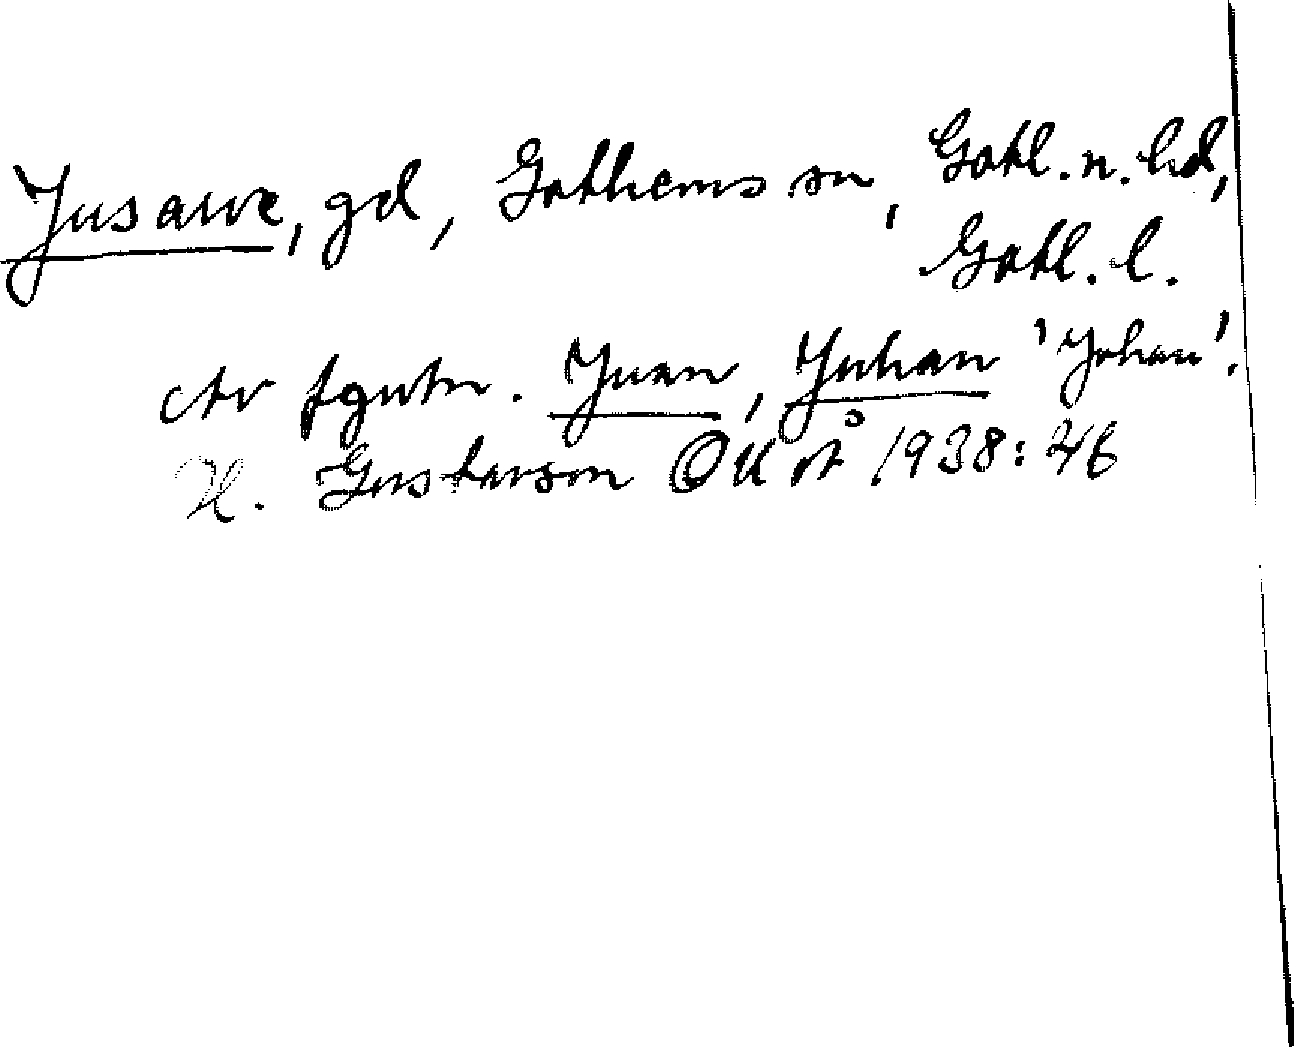 Jusarve, gd, Gothems sn, Gotl. n. hd,
Gotl. l.
Av fgutn. Juan, Juhan 'Johan'.
H. Gustavson OUÅ 1938: 46